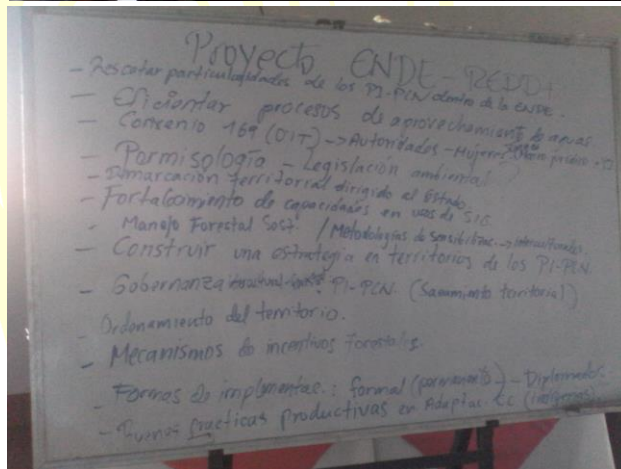 Proyecto ENDE-REDD+
- Rescatar particularidades de los PI-PCN dentro de la ENDE.
- Eficientar procesos de aprovechamiento de aguas
- Convenio 169 (OIT) -> Autoridades - Mujeres
- Permisología - Legislación ambiental
- Demarcación territorial dirigido al Estado.
- Fortalecimiento de capacidades en usos de SIG
- Manejo Forestal Sost. / Metodologías de Sensibilizac. -> interculturales.
- Construir una estrategia en territorios de los PI-PCN
- Gobernanza PI-PCN. (Saneamiento territorial)
- Ordenamiento del territorio.
- Mecanismos de incentivos forestales.
- Formas de implementac.: formal (permanente) - Diplomados.
- Buenas practicas productivas en Adaptac. CC (indígenas).